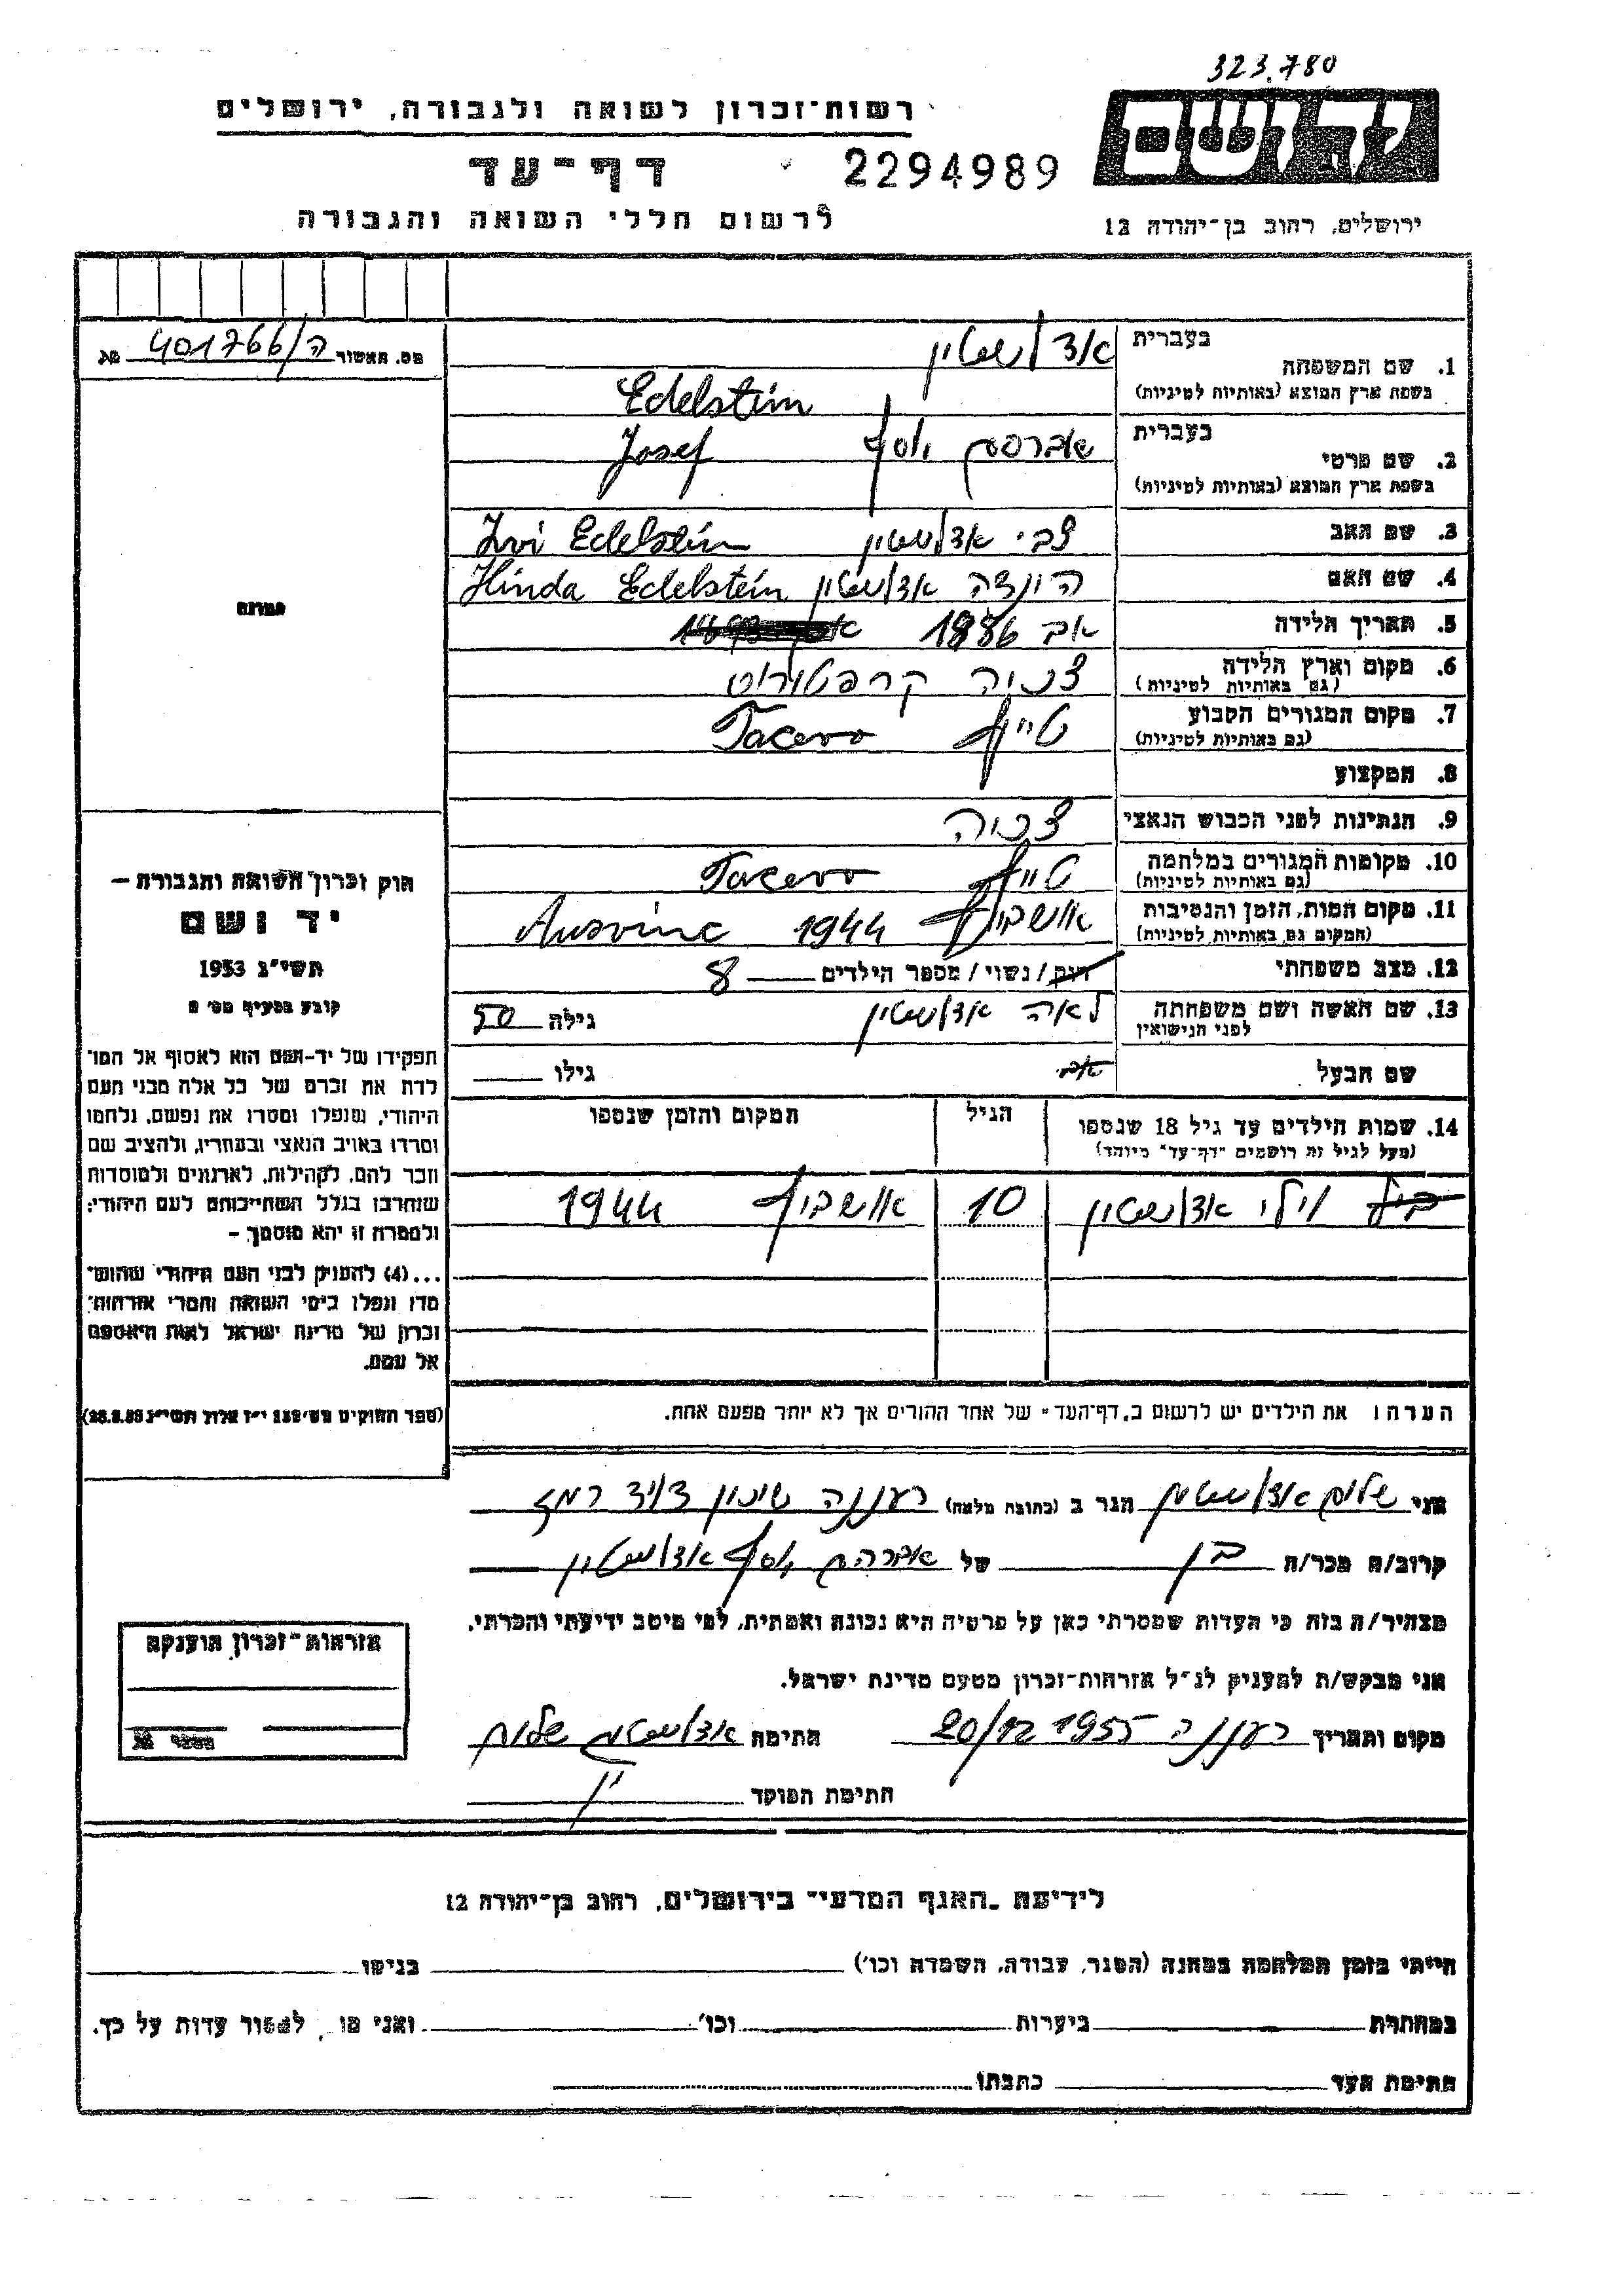 323.780
יד ושם
רשות־זכרון לשואה ולגבורה, ירושלים
דף־עד
2294989
לרשום חללי השואה והגבורה
ירושלים, רחוב בן־יהודה 12
מס. האשור ה/401766
1. שם המשפחה
בעברית
אדלשטין
בשפת ארץ המוצא (באותיות לטיניות)
Edelstein
2. שם פרטי
בעברית
יוסף
בשפת ארץ המוצא (באותיות לטיניות)
Josef
3. שם האב
צבי אדלשטין Zvi Edelstein
4. שם האם
הינדה אדלשטין Hinda Edelstein
5. תאריך הלידה
אב 1886
6. מקום וארץ הלידה
(גם באותיות לטיניות)
צכיה
7. מקום המגורים הקבוע
(גם באותיות לטיניות)
Tacevo
8. המקצוע
9. הנתינות לפני הכבוש הנאצי
צכיה
10. מקומות המגורים במלחמה
(גם באותיות לטיניות)
Tacevo
11. מקום המות, הזמן והנסיבות
(המקום גם באותיות לטיניות)
אושביץ 1944 Ausvinc
12. מצב משפחתי
רווק/נשוי/מספר הילדים 8
13. שם האשה ושם משפחתה
לפני הנישואין
לאה אדלשטין גילה 50
שם הבעל
גילו
14. שמות הילדים עד גיל 18 שנספו
(מעל לגיל זה רושמים "דף־עד" מיוחד)
הגיל
המקום והזמן שנספו
וילי אדלשטין 10 אושביץ 1944
הערה: את הילדים יש לרשום ב"דף־העד" של אחד ההורים אך לא יותר מפעם אחת.
תמונה
חוק זכרון השואה והגבורה –
יד ושם
תשי"ג 1953
קובע בסעיף מס׳ 2
תפקידו של יד־ושם הוא לאסוף אל המו־
לדת את זכרם של כל אלה מבני העם
היהודי, שנפלו ומסרו את נפשם, נלחמו
ומרדו באויב הנאצי ובעוזריו, ולהציב שם
וזכר להם, לקהילות, לארגונים ולמוסדות
שנחרבו בגלל השתייכותם לעם היהודי;
ולמטרה זו יהא מוסמך –
...(4) להעניק לבני העם היהודי שהוש־
מדו ונפלו בימי השואה והמרי אזרחות־
זכרון של מדינת ישראל לאות היאספם
אל עמם.
(ספר החוקים מס׳ 132 י"ז אלול תשי"ג 28.8.53)
אני שלום אדלשטין הגר ב (כתובת מלאה) רעננה שיכון דויד רמז
קרוב/ה מכר/ה בן של אברהם יוסף אדלשטין
מצהיר/ה בזה כי העדות שמסרתי כאן על פרטיה היא נכונה ואמתית, לפי מיטב ידיעתי והכרתי.
אני מבקש/ת להעניק לנ"ל אזרחות־זכרון מטעם מדינת ישראל.
מקום ותאריך רעננה 20/12 1955 חתימה אדלשטין שלום
חתימת הפוקד
אזרחות־זכרון הוענקה
לידיעת "האגף המדעי" בירושלים, רחוב בן־יהודה 12
הייתי בזמן המלחמה במחנה (הסגר, עבודה, השמדה וכו׳) בגיטו
במחתרת ביערות וכו׳ ואני מו , למסור עדות על כך.
חתימת העד כתבתו